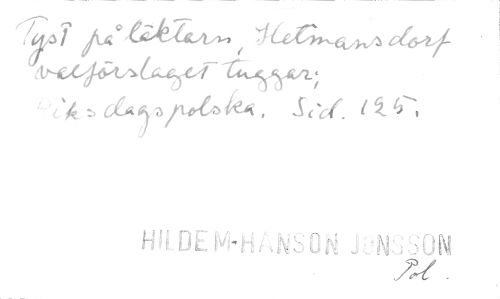 Tyst på läktarn, Hetmansdorf
valförslaget tuggar;
Riksdagspolska. Sid. 125.
HILDEM-HANSON JÖNSSON
Pol.